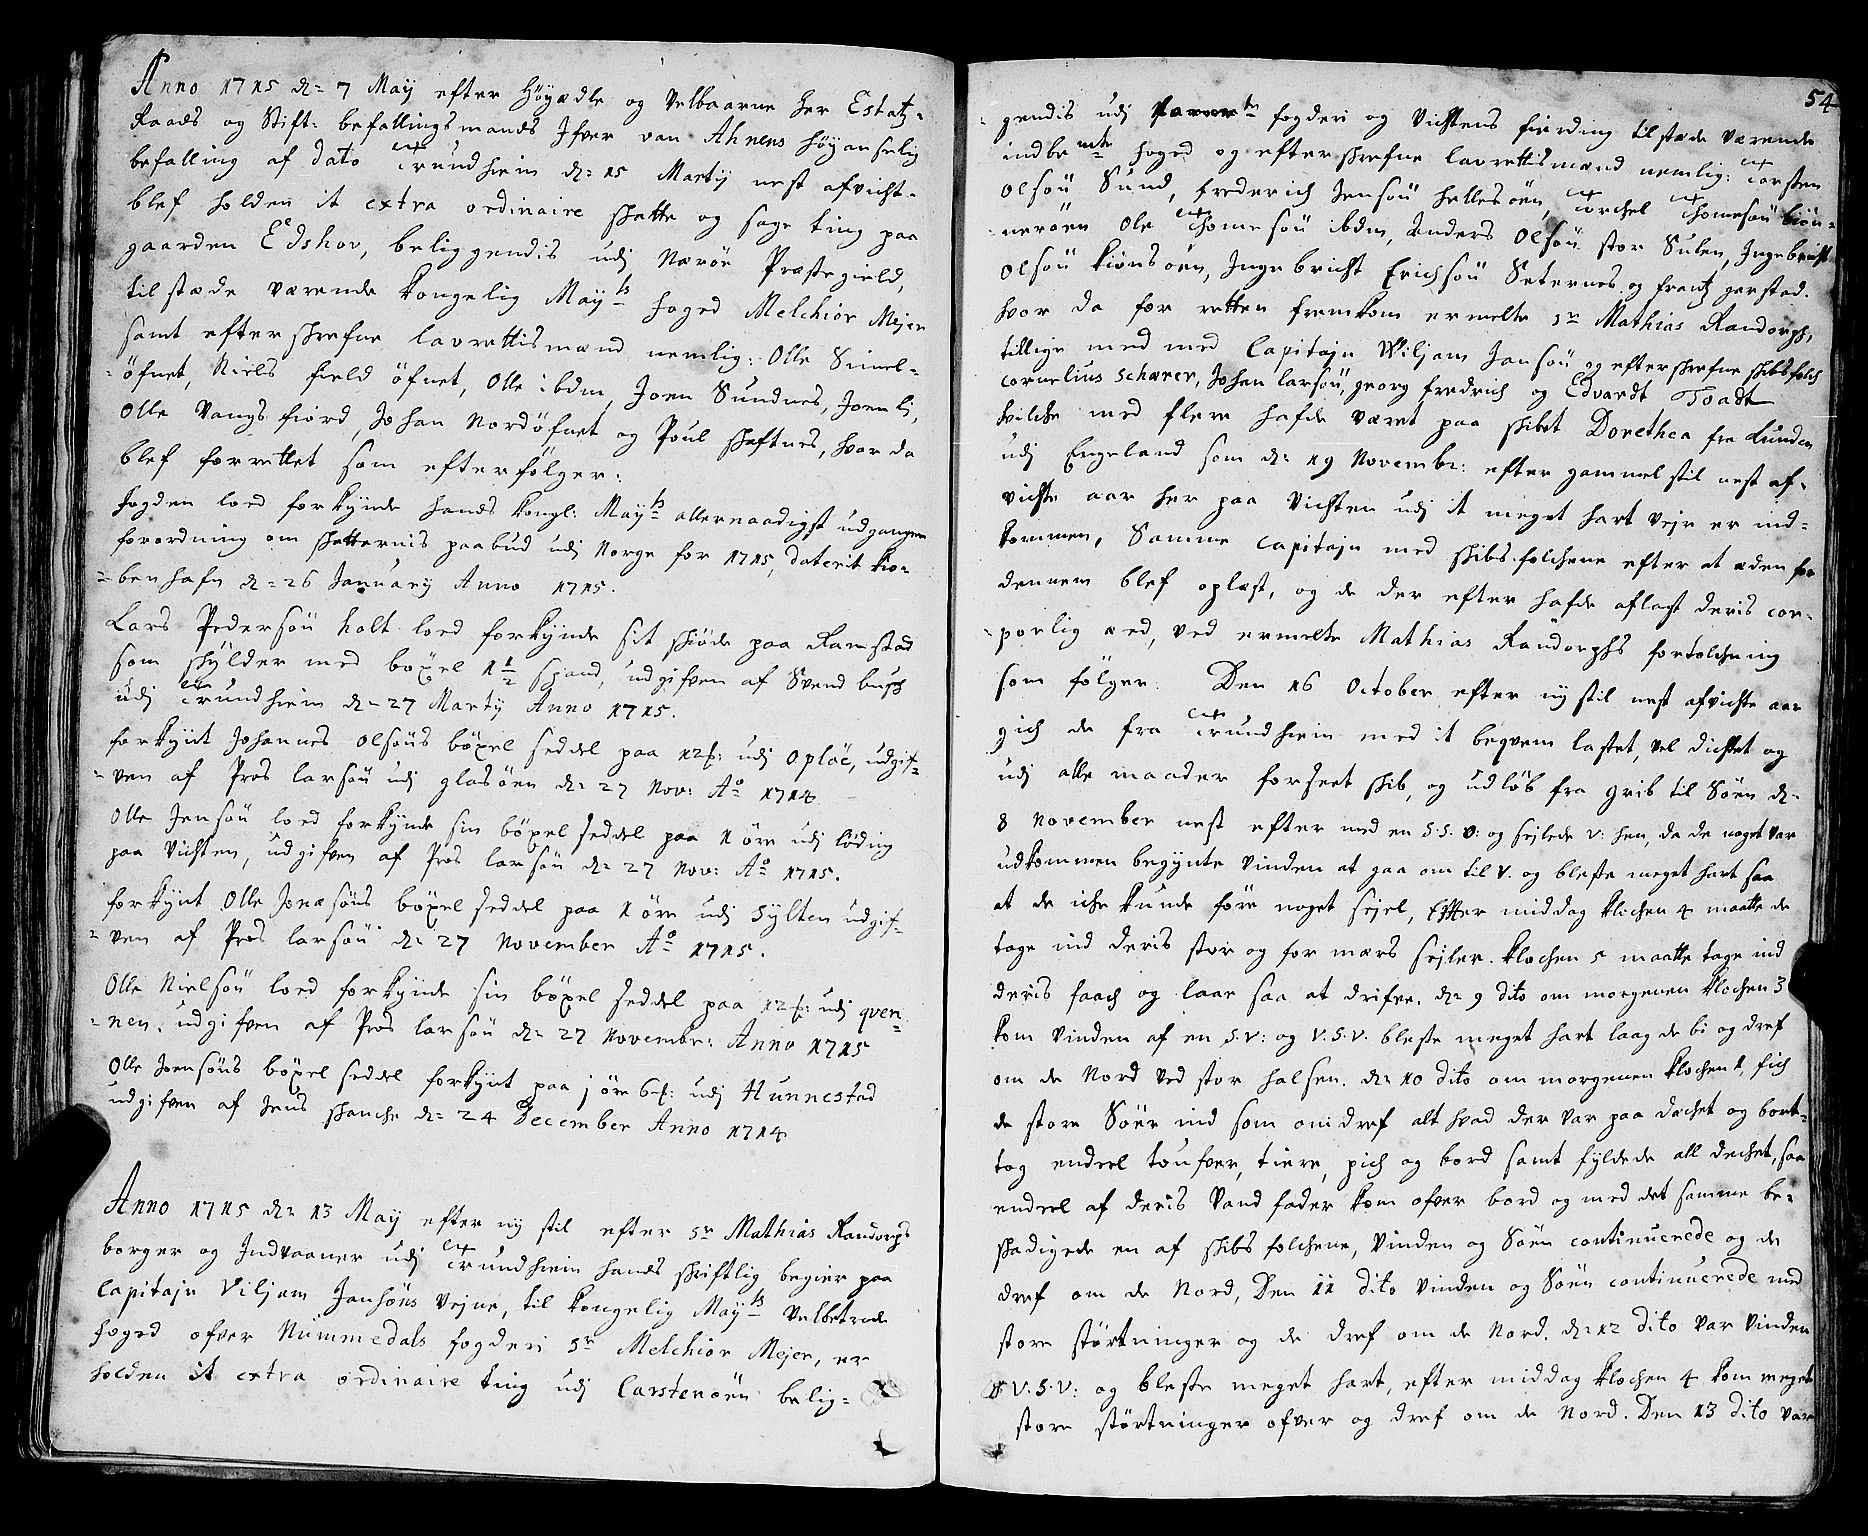 Anno 1715 d= 7 Maij efter Höyædle og Velbaarne Her Estatz-
Raads og Stift: befallings mands Ifver van Ahnens höyanselig
befalling af dato Trundhiem d= 15 Martij nest afvicht-
blef holden it extra ordinaire skatte og sage ting paa
gaarden Edshov, beliggendis udj Nærøe Præstegield,
tilstæde værende Kongelig Mayts foged Melchior Mejer
samt efterskrefne lavrettismænd nemlig: Olle Simel-
öfnet, Niels field öfnet, Olle ibdm, Joen Sundnes, Joen li,
Olle Vangsfiord, Johan Nordöfnet og Poul skaftnes, hvor da
blef forrettet som efterfölger:
fogden loed forkynde hands kongl: Mayts allernaadigst udgangen
forordning om skatternis paabud udj Norge for 1715, daterit kio-
=benhafn d= 26 January Anno 1715.
Lars Pedersön holt loed forkynde sit skiöde paa Ramstad
som skylder med böxel 1 1/2 spand, udgifven af Svend busch
udj Trundhiem d= 27 Martij Anno 1715.
forkynt Johannes olsöns böxel seddel paa 12 f: udj oploe, udgif-
=ven af Pros larsön udj gladsöen d= 27 Nov: Ao 1714
Olle Jensön loed forkynde sin böxel seddel paa 1 öre udj löding
paa Vichten, udgifven af Pros larsön d= 27 Nov: Ao 1715.
forkynt Olle Jonæsöns böxel seddel paa 1 öre udj Sylten udgif-
=ven af Pros larsön d= 27 November Ao 1715.
Olle Nielsön loed forkynde sin böxel seddel paa 12 f: udj qven-
=nen, udgifven af Pros larsön d= 27 Novembr: Anno 1715
Olle Joensöns böxel seddel forkynt paa j öre 6 f: udj Hunnestad
udgifven af Jens skanche d= 24 December Anno 1714
Anno 1715 d= 13 Maij efter ny stil efter Sr Mathias Randorphs
borger og Indvaaner udj Trundhiem hands skriftlig begier paa
Capitajn Viljam Jansöns Vejne, til Kongelig Mayts Velbetrode
foged ofver Nummedals fogderi Sr Melchior Mejer, er
holden it extra ordinaire ting udj Carstenöen belig=
54
=gendis udj fogderi og Vichtens fierding tilstæde værende
indbemte foged og efterskrefne lavrettismænd nemlig: Torsten
Olsön Sund, frederich Jensön hellesöen, Torchel Thomesön biön=
=neröen Ole Thomesön ibdm, Anders Olsön stor Sulen, Ingebricht
Olsön kiönsöen, Ingebricht Erichsön Seternes og frantz garstad.
hvor da for retten fremkom ermelte Sr Mathias Randorph,
tillige med med Capitajn Wiljam Jansön og efterskrefne skibsfolch
cornelius Schærer, Johan larsön, georg fredrich og Edvardt Toadt
hvilche med flere hafde været paa skibet Dorethea fra Lunden
udj Engeland som d= 19 Novembr: efter gammel stil nest af-
vichte aar her paa Vichten udj it meget hart vejr er ind-
kommen, Samme Capitajn med skibsfolchene efter at æden for
dennem blef oplæst, og de der efter hafde aflagt deris cor-
=porlig æed, ved ermelte Mathias Randorphs fortolchning
som fölger. Den 16 October efter ny stil nest afvichte aar
gich de fra Trundhiem med it beqvem lastet, vel dichtet og
udj alle maader forseet skib, og udlöb fra grib til Söen d=
8 November nest efter med en S.S.O: og sejlede V: hen, da de noget var
udkommen begynte vinden at gaa om til V. og bleste meget hart saa
at de iche kunde före noget sejel, Efter middag klochen 4 maatte de
tage ind deris stor og for mærs sejler. klochen 5 maatte tage ind
deris faach og laae saa at drifve. d= 9 dito om morgenen klochen 3
kom vinden af en S.V: og V.S.V. bleste meget hart laag de bi og dref
om de Nord ved stor halsen. d= 10 dito om morgenen klochen 1, fich
de store Söer ind som omdref alt hvad der var paa dachet og bort-
tog endeel toufver, tiere, pich og bord samt fyldede all dechet, saa
endeel af deris Vand fader kom ofver bord og med det samme be-
skadigede en af skibs folchene, Vinden og Söen continuerede og de
dref om de Nord, Den 11 dito Vinden og Söen continuerede med
store störtninger og de dref om de Nord. d= 12 dito var vinden
V.S.V: og bleste meget hart, efter middag klochen 4 kom meget
store störtninger ofver og dref om de Nord. Den 13 dito var